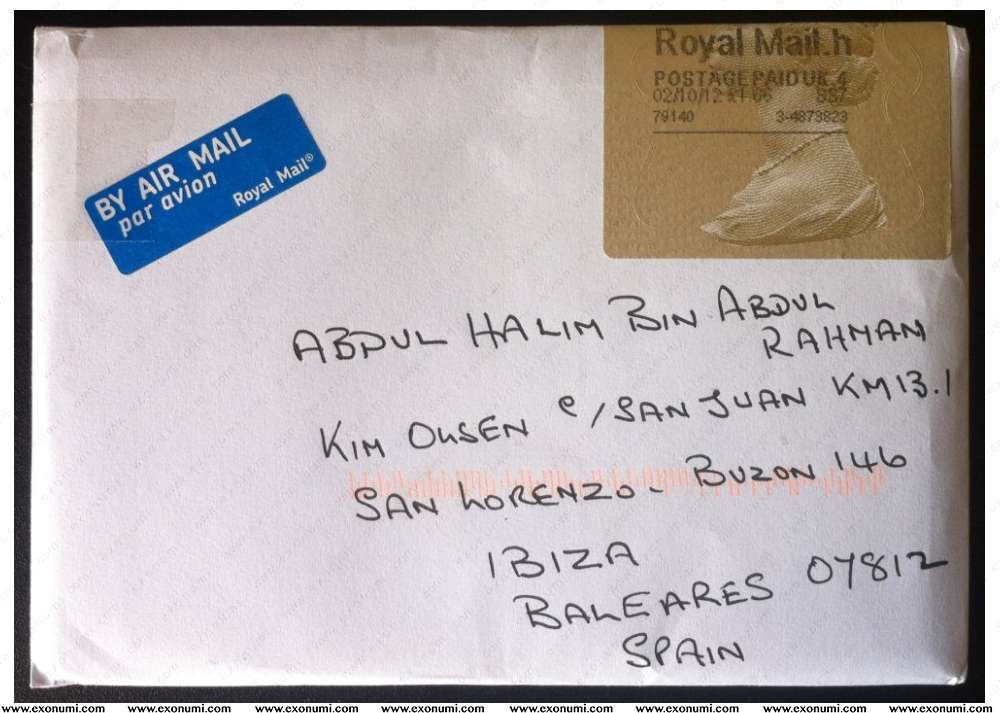 Royal Mail.h
POSTAGE PAID UK 4
02/10/12 £1.06 SS7
79140 3-4873823
BY AIR MAIL
par avion
Royal Mail®
ABDUL HALIM BIN ABDUL
RAHMAN
KIM OLSEN c/SAN JUAN KM 13.1
SAN LORENZO - BUZON 146
IBIZA
BALEARES 07812
SPAIN
www.exonumi.com www.exonumi.com www.exonumi.com www.exonumi.com www.exonumi.com www.exonumi.com www.exonumi.com www.exonumi.com